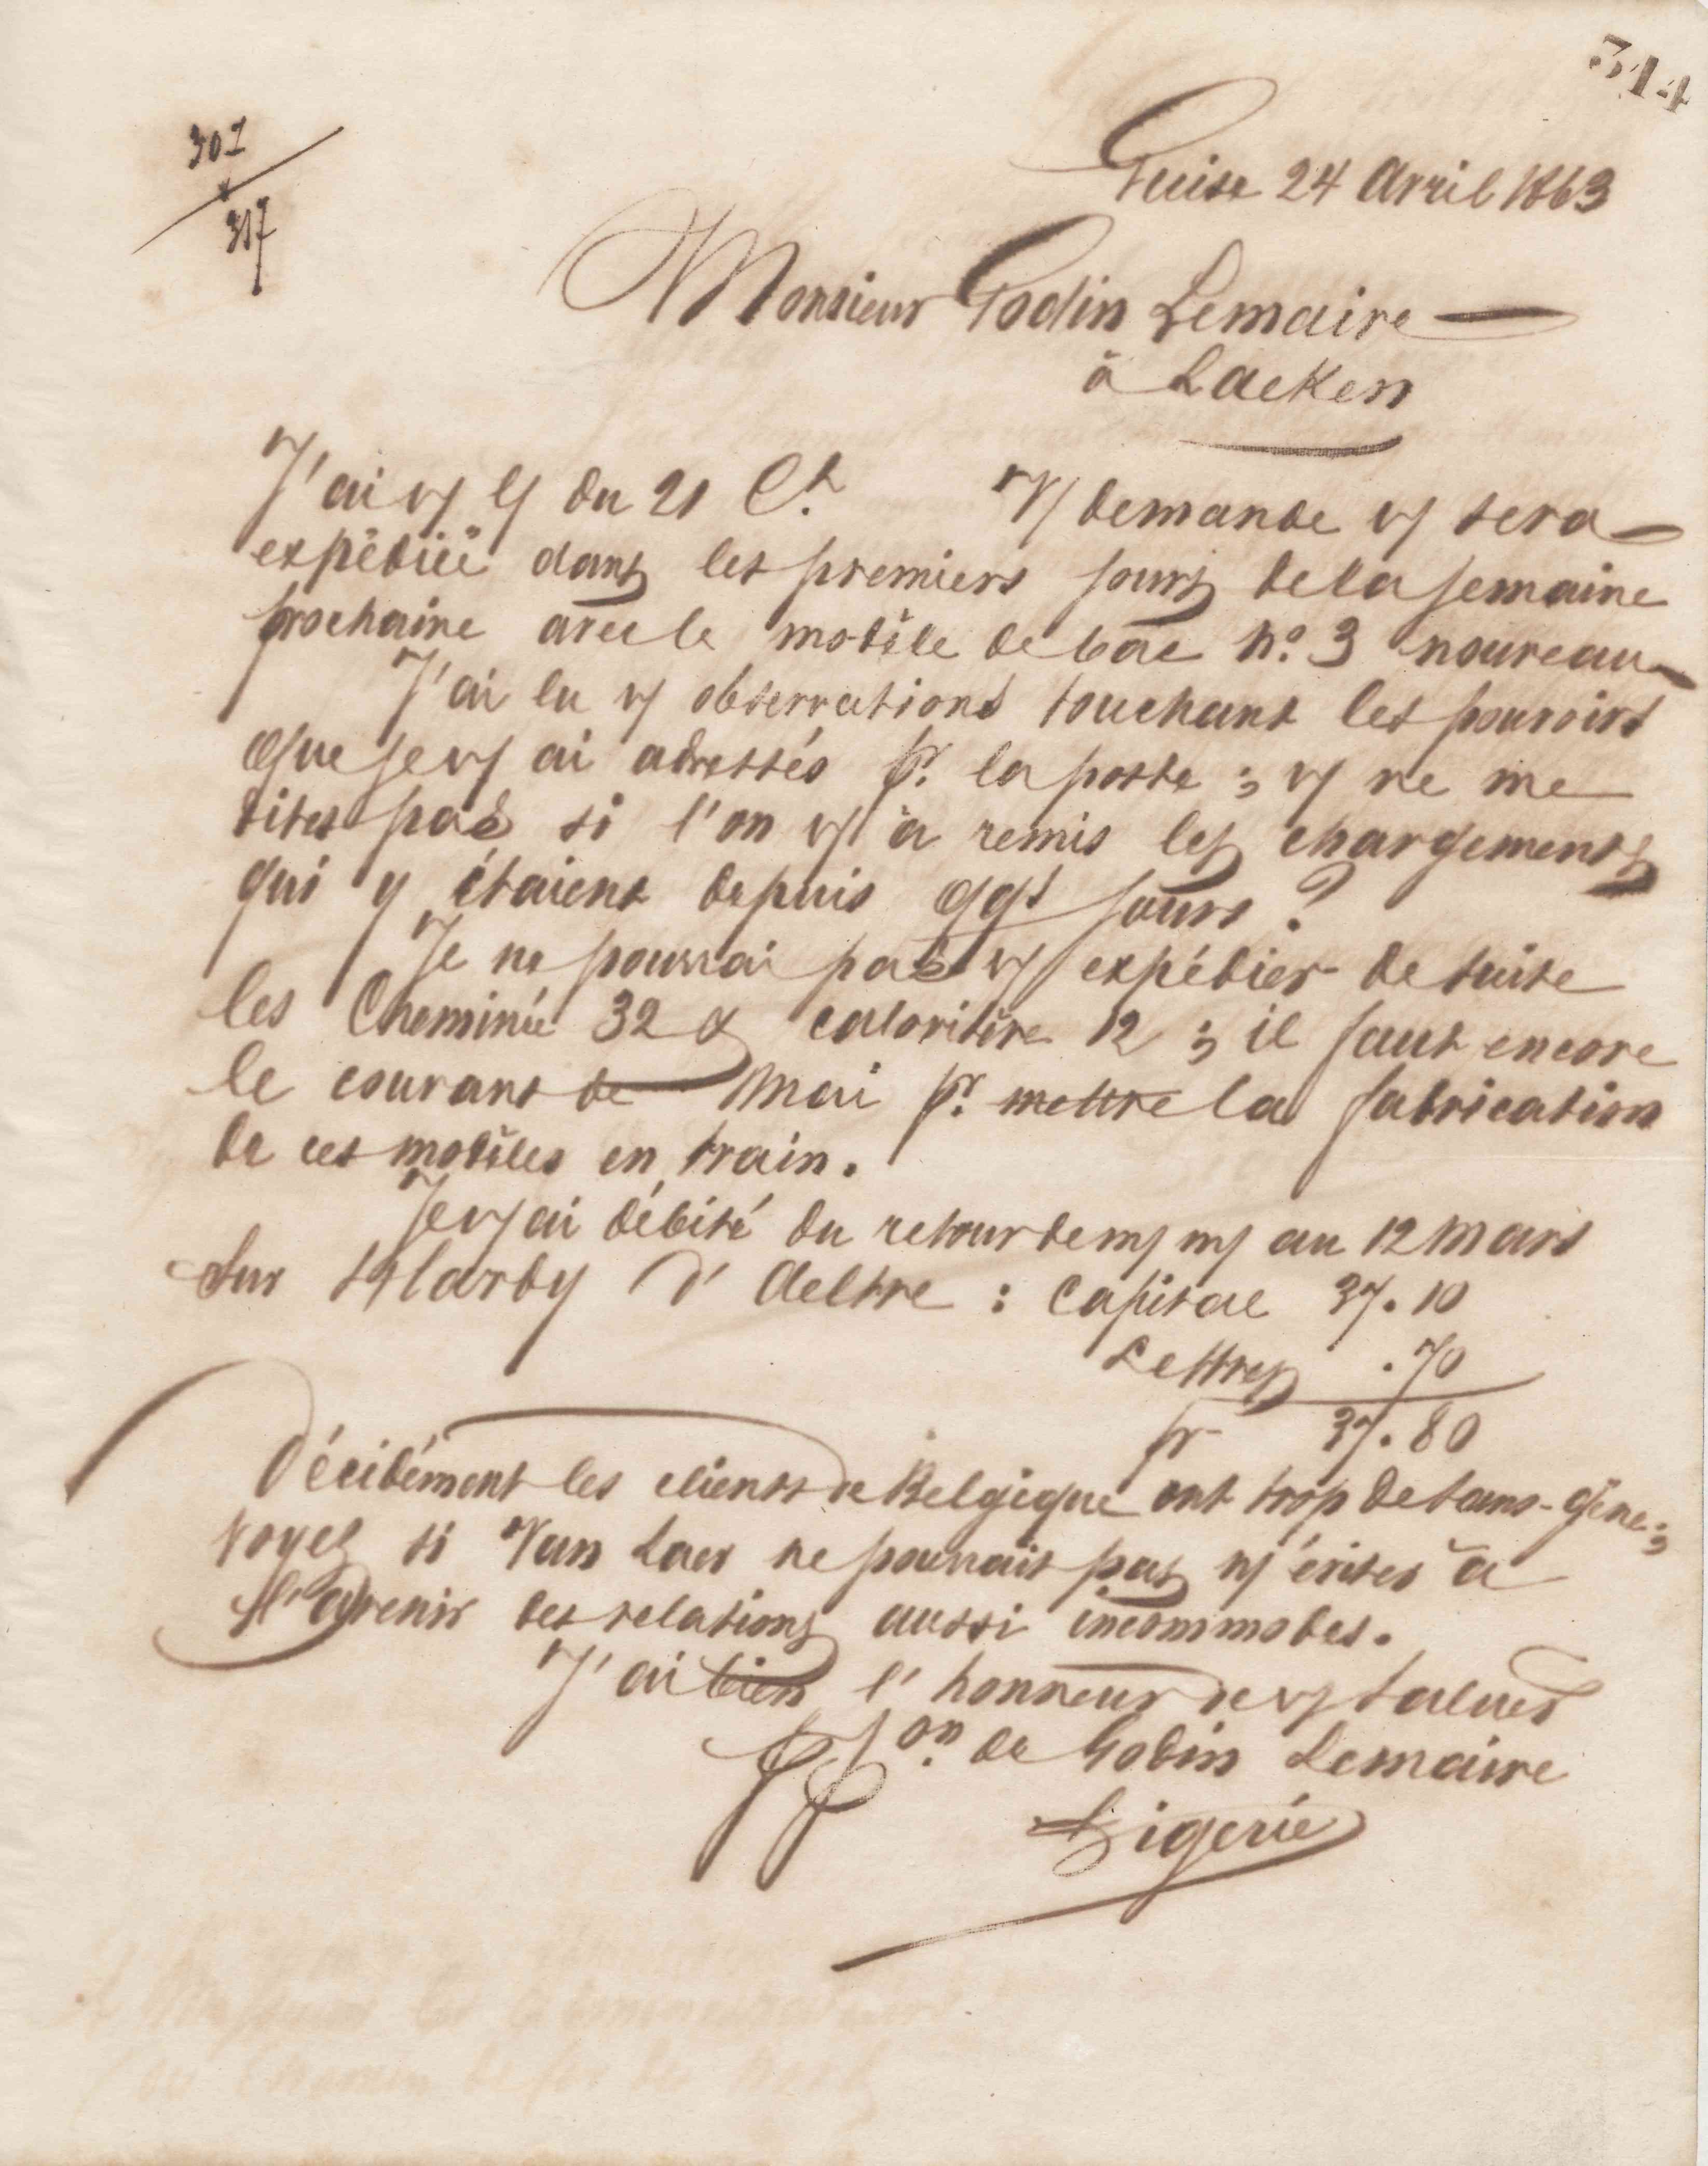 314
301
317
Guise 24 Avril 1863
Monsieur Godin Lemaire
à Laeken
J'ai v/ l/ du 21 Ct. V/ demande v/ sera
expédiée dans les premiers jours de la semaine
prochaine avec le modèle de bac No. 3 nouveau
J'ai lu v/ observations touchant les pouvoirs
que je v/ ai adressés pr. la poste ; v/ ne me
dites pas si l'on v/ a remis les chargements
qui y étaient depuis qqs jours ?
Je ne pourrai pas v/ expédier de suite
les Cheminée 32 & calorifère 12 ; il faut encore
le courant de Mai pr. mettre la fabrication
de ces modèles en train.
Je v/ ai débité du retour de m/ m/ au 12 Mars
sur Harby d'Aeltre : Capital 37.10
Lettres .70
fr 37.80
Décidément les clients de Belgique ont trop de sans-gêne ;
voyez si Van Laer ne pourrait pas n/ éviter à
l'avenir des relations aussi incommodes.
J'ai bien l'honneur de v/ saluer
on. de Godin Lemaire